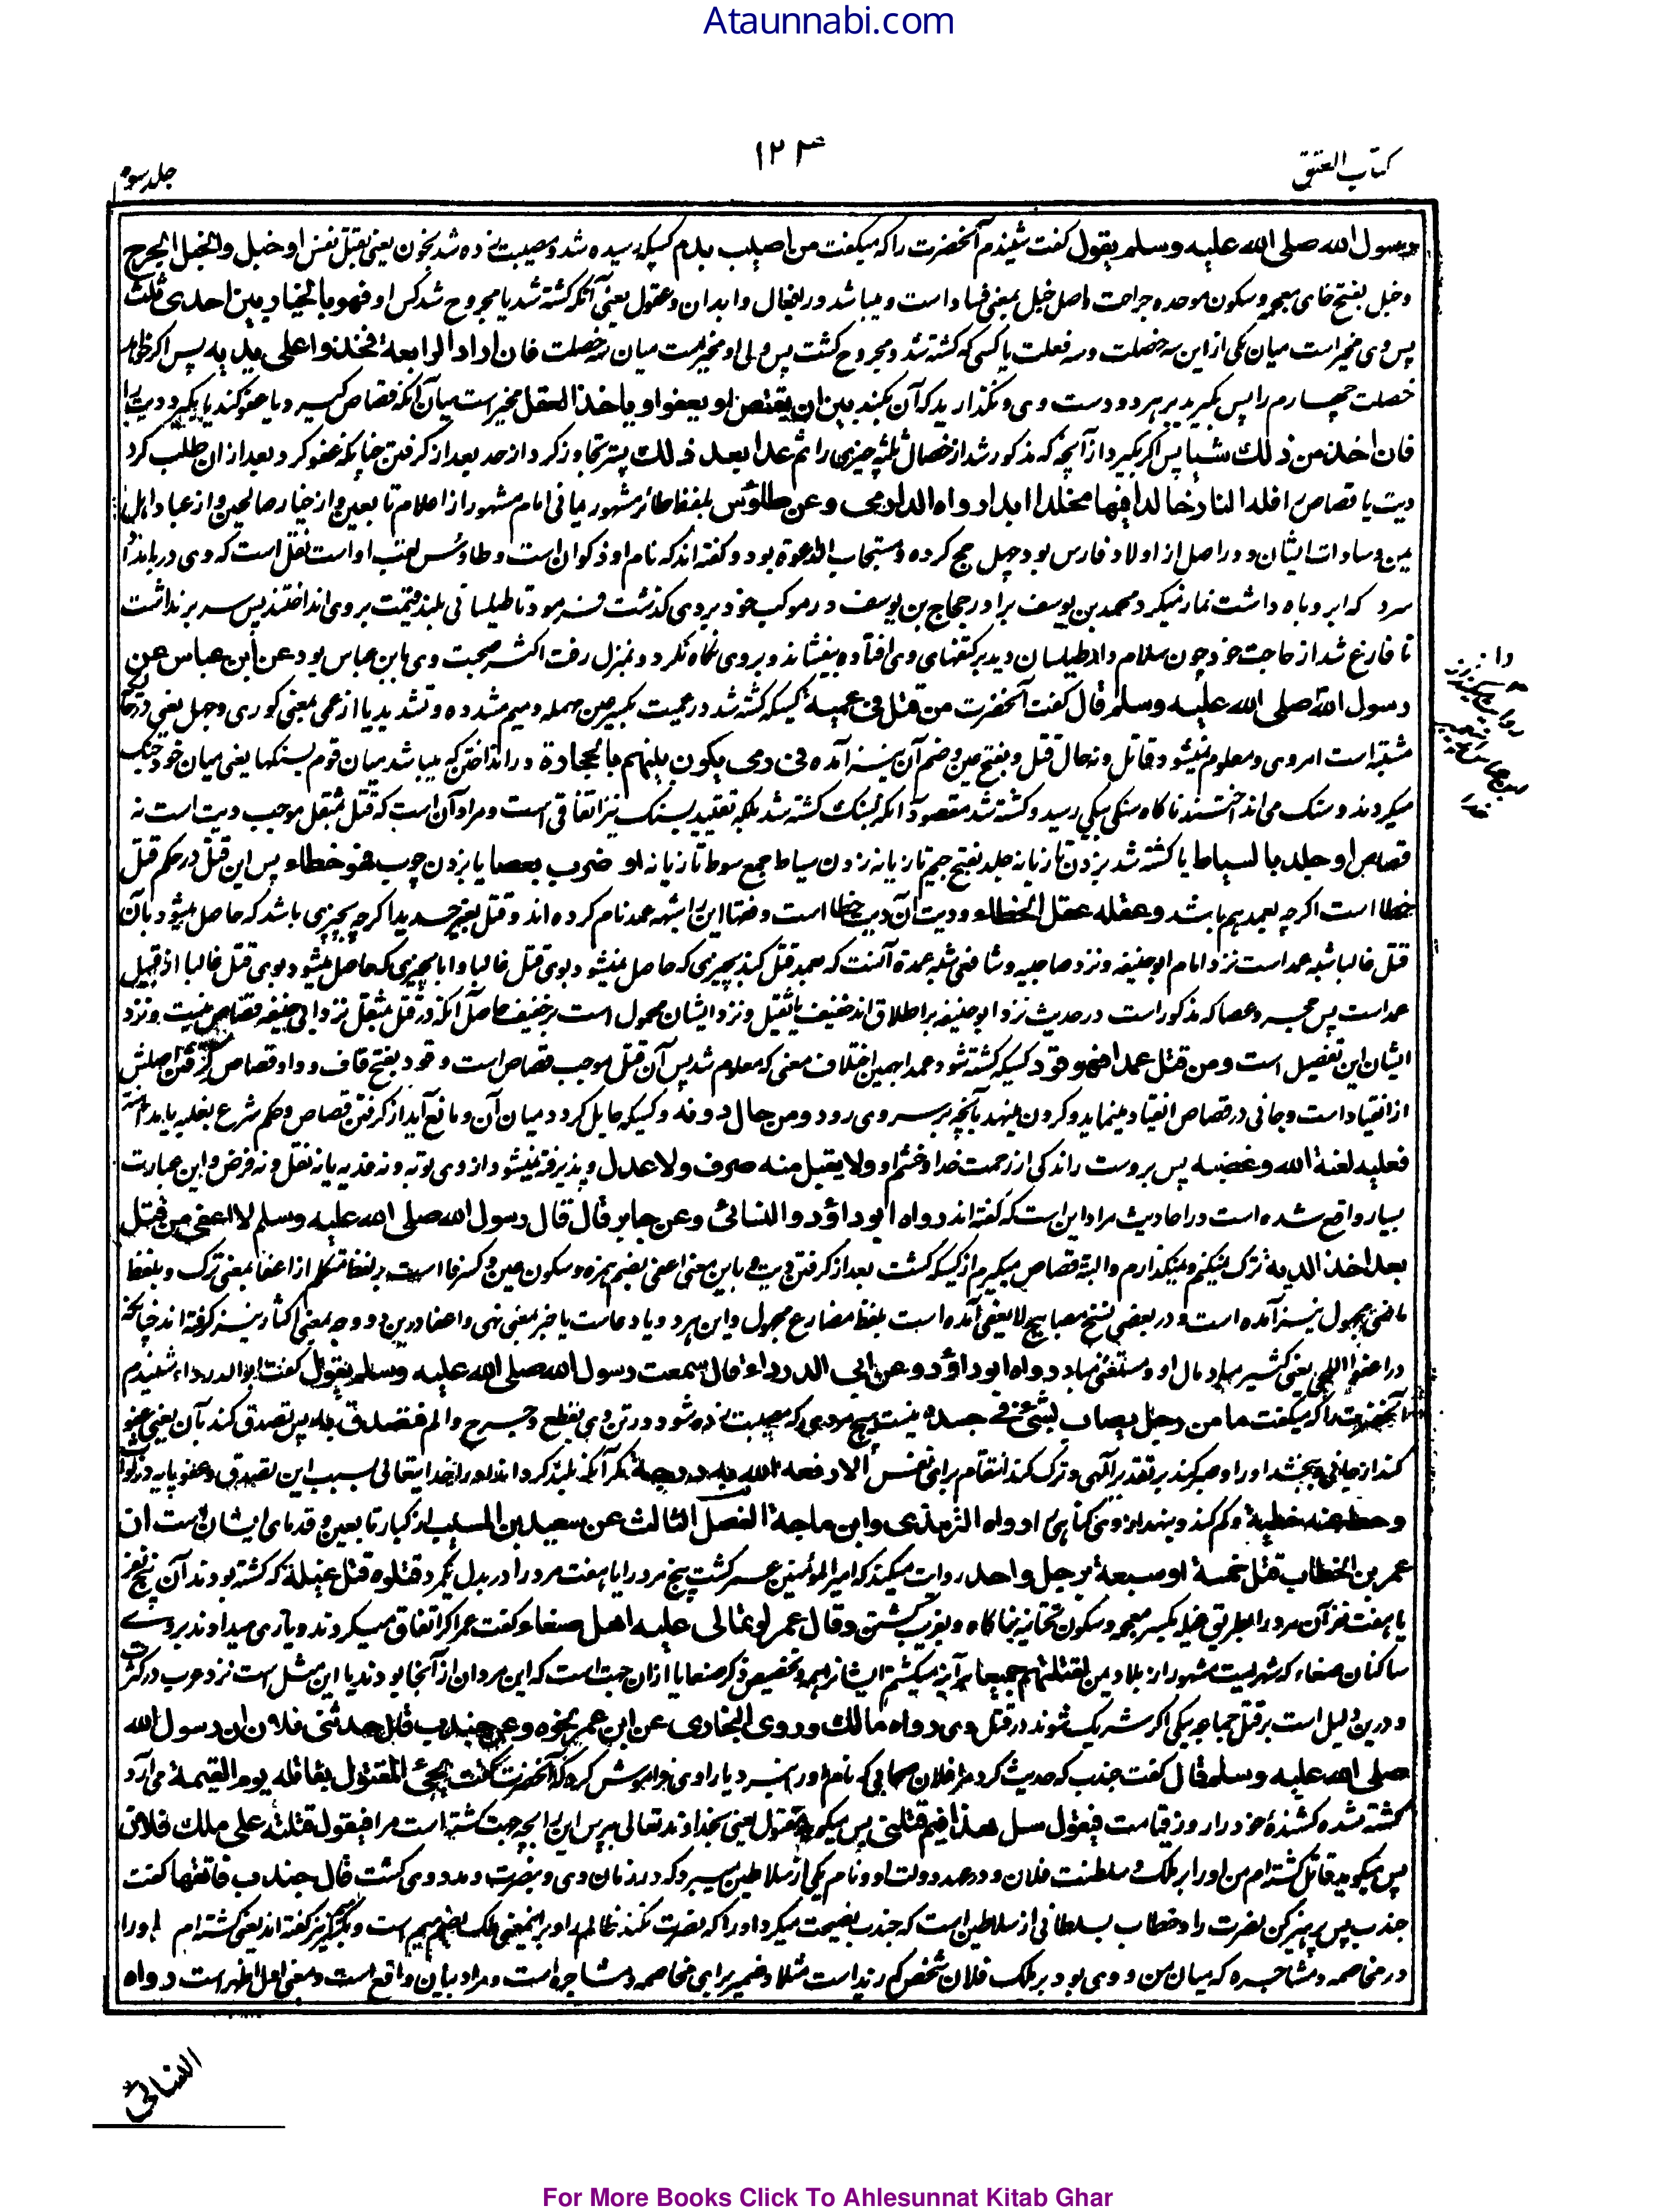 Ataunnabi.com
کتاب العتق
۱۲۴
جلد سوم
رسول الله صلی الله علیه وسلم یقول کفت شنیدم آنحضرت را که میکفت من اصیب بدم کسیکه رسیده شد و مصیبت زده شد بخون یعنی بقتل نفس او خبل والخبل الجرح
وخبل بفتح خای معجمه وسکون موحده جراحت واصل خبل بمعنی فساد است ومیباشد در افعال وابدان وعقول یعنی آنکه کشته شد یا مجروح شد کس او فهو بالخیار بین احدی ثلث
پس وی مخیر است میان یکی ازین سه خصلت وسه فعلت یا کسی که کشته شد ومجروح کشت پس ولی او مخیر است میان سه خصلت فان اراد الرابعة فخذوا علی یدیه پس اکر خواهد
خصلت چهارم را پس بکیرید بر هر دو دست وی ونکذارید که آن بکند بین ان یقتص او یعفو او یاخذ العقل مخیر است میان آنکه قصاص کیرد و یا عفو کند یا بکیرد دیت را
فان اخذ من ذلك شیئا پس اکر بکیرد از آنچه که مذکور شد از خصال ثلثه چیزی را ثم عدا بعد ذلك پستر تجاوز کرد از حد بعد از کرفتن چنانکه عفو کرد وبعد ازان طلب کرد
دیت یا قصاص را فله النار خالدا فیها مخلدا ابدا رواه الدارمی وعن طاؤس بلفظ طائر مشهور یمانی امام مشهور از اعلام تابعین واز خیار صالحین واز عباد اهل
یمن وسادات ایشان ودر اصل از اولاد فارس بود چهل حج کرده ومستجاب الدعوة بود وکفته اند که نام او ذکوان است وطاؤس لقب اوست نقل است که وی در بامداد
سرد که ابر وباد داشت نماز میکرد محمد بن یوسف برادر حجاج بن یوسف در موکب خود بروی کذشت فرمود تا طیلسانی بلند قیمت بروی انداختند پس سر برنداشت
تا فارغ شد از حاجت خود چون سلام داد طیلسان دید بر کتفهای وی افتاده بیفشاند و بروی نکاه نکرد وبمنزل رفت اکثر صحبت وی با ابن عباس بود عن ابن عباس عن
رسول الله صلی الله علیه وسلم قال کفت آنحضرت من قتل فی عمیة کسیکه کشته شد در عمیت بکسر عین مهمله ومیم مشدده وتشدید یا از عمی بمعنی کوری وجهل یعنی در
مشتبه است امر وی ومعلوم نمیشود قاتل ونه حال قتل وبفتح عین وضم آن نیز آمده فی رمی یکون بینهم بالحجارة در انداختن که میباشد میان قوم بسنکها یعنی میان خود جنک
میکردند وسنک می انداختند ناکاه سنکی بیکی رسید وکشته شد مقصود آنکه بسنک کشته شد بلکه تقیید بسنک نیز اتفاقی است ومراد آن است که قتل بمثقل موجب دیت است نه
قصاص او جلد بالسیاط یا کشته شد بزدن تازیانه جلد بفتح جیم تازیانه زدن سیاط جمع سوط تازیانه او ضرب بعصا یا بزدن چوب فهو خطاء پس این قتل در حکم قتل
خطا است اکرچه بعمد هم باشد وعقله عقل الخطاء ودیت آن دیت خطا است وفقها این را شبه عمد نام کرده اند وقتل بغیر حدید اکرچه بچیزی باشد که حاصل میشود بآن
قتل غالبا شبه عمد است نزد امام ابو حنیفه ونزد صاحبیه وشافعی شبه عمد آنست که بعمد قتل کند بچیزی که حاصل نمیشود بوی قتل غالبا واما بچیزی که حاصل میشود بوی قتل غالبا از قبیل
عمد است پس حجر وعصا که مذکور است در حدیث نزد ابو حنیفه بر اطلاق اند خفیف یا ثقیل ونزد ایشان محمول است بر خفیف حاصل آنکه در قتل بمثقل نزد ابی حنیفه قصاص نیست ونزد
ایشان این تفصیل است ومن قتل عمدا فهو قود کسیکه کشته شود عمدا بهمین اختلاف معنی که معلوم شد پس آن قتل موجب قصاص است وقود بفتح قاف وواو قصاص کرفتن اصلش
از انقیاد است وجانی در قصاص انقیاد مینماید وکردن مینهد بآنچه بر سر وی رود ومن حال دونه وکسیکه حایل کردد میان آن ومانع آید از کرفتن قصاص وحکم شرع بغلبه یا بمداهنه
فعلیه لعنة الله وغضبه پس بروست راندکی از رحمت خدا وخشم او ولا یقبل منه صرف ولا عدل وپذیرفته نمیشود از وی توبه ونه فدیه یا نه نفل ونه فرض واین عبارت
بسیار واقع شده است در احادیث مراد این است که کفته اند رواه ابو داؤد والنسائی وعن جابر قال قال رسول الله صلی الله علیه وسلم لا اعفی من قتل
بعد اخذ الدیة ترک نمیکنم ونمیکذارم والبته قصاص میکیرم از کسیکه کشت بعد از کرفتن دیت وباین معنی اعفی بضم همزه وسکون عین وکسر فا است بلفظ متکلم از اعفا بمعنی ترک وبلفظ
ماضی مجهول نیز آمده است ودر بعضی نسخ مصابیح لا یعفی آمده است بلفظ مضارع مجهول واین هر دو یا دعاست یا خبر بمعنی نهی واعفا درین دو وجه بمعنی اکثار نیز کرفته اند چنانکه
در اعفوا اللحی یعنی کثیر مباد مال او ومستغنی مباد رواه ابو داؤد وعن ابی الدرداء قال سمعت رسول الله صلی الله علیه وسلم یقول کفت ابو الدرداء شنیدم
آنحضرت را که میکفت ما من رجل یصاب بشئ فی جسده نیست هیچ مردی که مصیبت زده شود در تن وی بقطع وجرح والم فتصدق به پس تصدق کند بآن یعنی عفو
کند از جانی وببخشد او را وصبر کند بر تقدیر الهی وترک کند انتقام برای نفس الا رفعه الله به درجة مکر آنکه بلند کرداند او را خدایتعالی بسبب این تصدق وعفو پایه در
وحط عنه خطیئة وکم کند وبیندازد وی کناهی را رواه الترمذی وابن ماجة الفصل الثالث عن سعید بن المسیب از کبار تابعین وقدمای ایشان است ان
عمر بن الخطاب قتل خمسة او سبعة برجل واحد روایت میکند که امیر المؤمنین عمر کشت پنج مرد را یا هفت مرد را در بدل یکمرد قتلوه قتل غیلة که کشته بودند آن پنج نفر
یا هفت نفر آن مرد را بطریق غیله بکسر معجمه وسکون تحتانیه بناکاه وبفریب کشتن وقال عمر لو تمالی علیه اهل صنعاء وکفت عمر اکر اتفاق میکردند ویاری میدادند بروی
ساکنان صنعاء که شهریست مشهور از بلاد یمن لقتلتهم جمیعا هر آینه میکشتم ایشانرا همه وتخصیص ذکر صنعا یا ازان جهت است که این مردان از آنجا بودند یا این مثل است نزد عرب در کثرت
ودرین دلیل است بر قتل جماعه بیکی اکر شریک شوند در قتل وی رواه مالك وروی البخاری عن ابن عمر نحوه وعن جندب قال حدثنی فلان ان رسول الله
صلی الله علیه وسلم قال کفت جندب که حدیث کرد مرا فلان صحابی که نام او را نبرد یا راوی فراموش کرد که آنحضرت کفت یجئ المقتول بقاتله یوم القیمة می آرد
کشته شده کشندۀ خود را روز قیامت فیقول سل هذا فیم قتلنی پس میکوید مقتول یعنی بخداوند تعالی بپرس این را بچه جهت کشته است مرا فیقول قتلته علی ملك فلان
پس میکوید قاتل کشته ام من او را بر ملک وسلطنت فلان ودر عهد دولت او ونام یکی از سلاطین میبرد که در زمان وی وبنصرت ومدد وی کشت قال جندب فاتقها کفت
جندب پس پرهیز کن نصرت را وخطاب بسلطانی از سلاطین است که جندب نصیحت میکرد او را که نصرت نکند ظالم را وبر این معنی ملک بضم میم است وبکسر نیز کفته اند یعنی کشته ام او را
در مخاصمه ومشاجره که میان من و وی بود بر ملک فلان شخص که زند است مثلا وضمیر برای مخاصمه ومشاجره است ومراد بیان واقع است ومعنی اول اظهر است رواه
النسائی
For More Books Click To Ahlesunnat Kitab Ghar